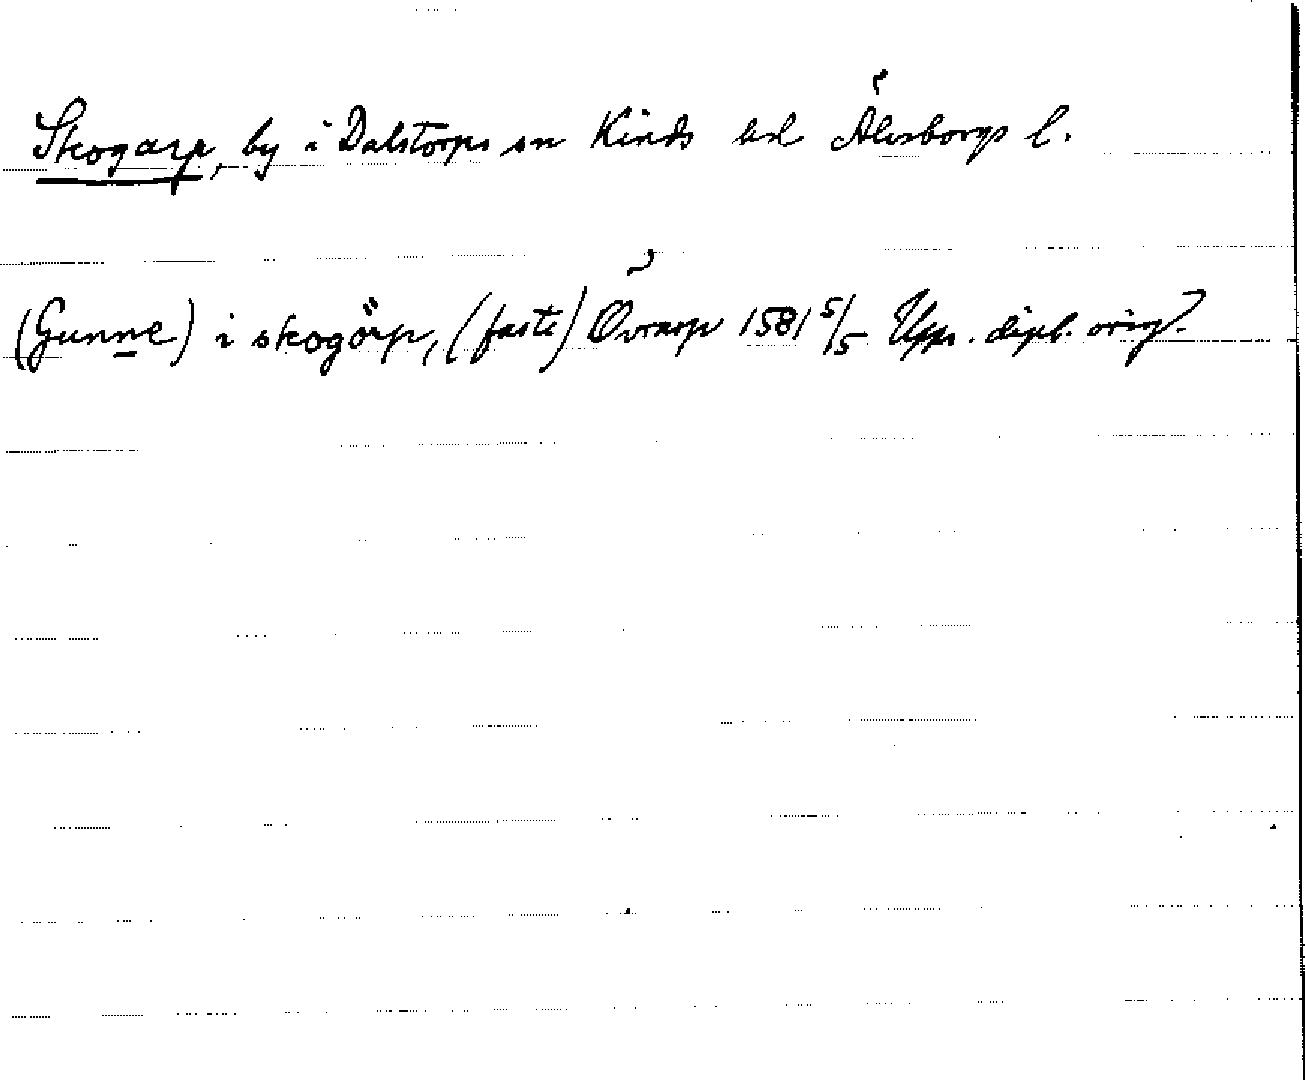 Skogarp, by i Dalstorps sn Kinds hd Älvsborgs l.
(Gunne) i skogörp, (faste) Övrarp 1581 5/5 Upps. dipl. orig.